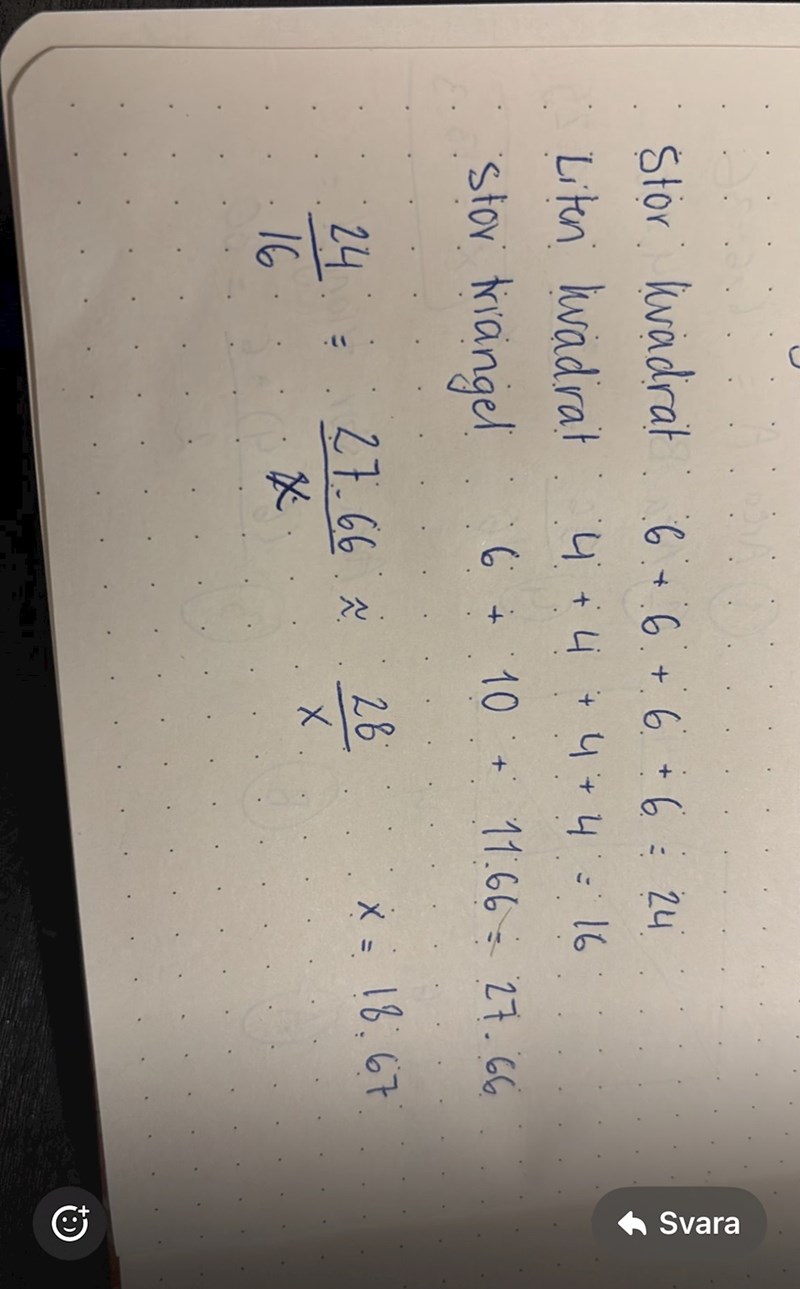 Stor kvadrat 6 + 6 + 6 + 6 = 24
Liten kvadrat 4 + 4 + 4 + 4 = 16
Stor triangel 6 + 10 + 11.66 = 27.66
24/16 = 27.66/x ≈ 28/x x = 18.67
Svara